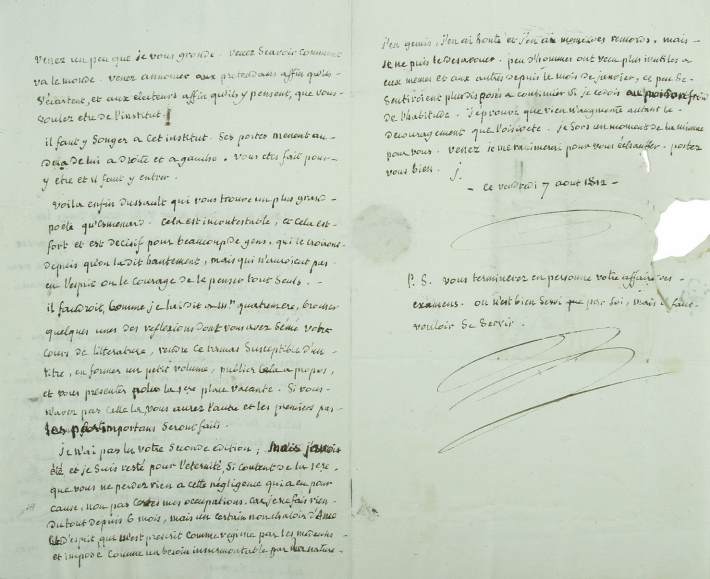 venez un peu que je vous gronde. venez scavoir comment
va le monde. venez annoncer aux pretendans affin qu'ils
s'écartent, et aux électeurs affin qu'ils y pensent, que vous
voulez etre de l'institut.
il faut y songer a cet institut. Ses portes menent au
dela de lui a droite et a gauche. vous etes fait pour
y etre et il faut y entrer.
Voila enfin dussault qui vous trouve un plus grand
poete qu'Esmenard. Cela est incontestable, et cela est
fort et est decisif pour beaucoup de gens, qui le croiront
depuis qu'on la dit hautement, mais qui n'auroient pas
eu l'esprit ou le courage de le penser tout seuls.
il faudroit, comme je lai dit a mr quatremere, broder
quelques unes des reflexions dont vous avez semé votre
cours de litterature, rendre ce ramas susceptible d'un
titre, en former un petit volume, publier cela a propos,
et vous presenter pour la 1ere place vacante. Si vous
n'avez pas celle la, vous aurez l'autre et les premiers pas
les plus importans seront faits.
je n'ai pas lu votre seconde edition;
et je suis resté pour l'eternité si content de la 1ere,
que vous ne perdez rien a cette négligence qui a eu pour
cause, non pas certes mes occupations, car je ne fais rien
du tout depuis 6 mois, mais un certain nonchaloir d'ame
et d'esprit qui m'est prescrit comme regime par les medecins
et imposé comme un besoin insurmontable par ma nature.
j'en gemis, j'en ai honte et j'en ai meme des remords, mais
je ne puis le desavouer. peu d'hommes ont vecu plus inutiles a
eux memes et aux autres depuis le mois de janvier, et peu se
sentiroient plus disposés a continuer si je cedois au poids
de l'habitude. J'eprouve que rien n'augmente autant le
decouragement que l'oisiveté. je sors un moment de la mienne
pour vous. venez je me ranimerai pour vous échauffer. portez
vous bien. j.
- ce vendredi 7 aout 1812 -
P. S. vous terminerez en personne votre affaire des
examens. on n'est bien servi que par soi, mais il faut
vouloir se servir.